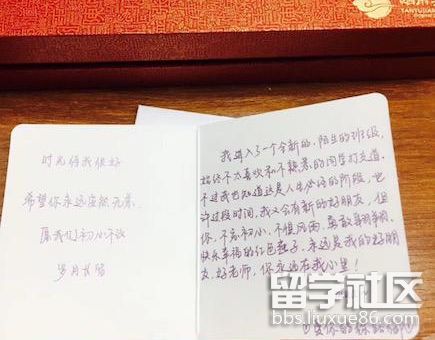 时光待我很好
希望你永远安然无恙,
愿我们初心不改
岁月长留
我进入了一个全新的、陌生的班级,
始终不太喜欢和不熟悉的同学打交道.
不过我也知道这是人生必经的阶段,也
许过段时间,我又会有新的好朋友,但
你,不忘初心、不惧风雨、勇敢
快乐幸福的红色燕子,永远是我的好朋
友、好老师,你永远在我心里!
爱你的
留学社区
bbs.liuxue86.com